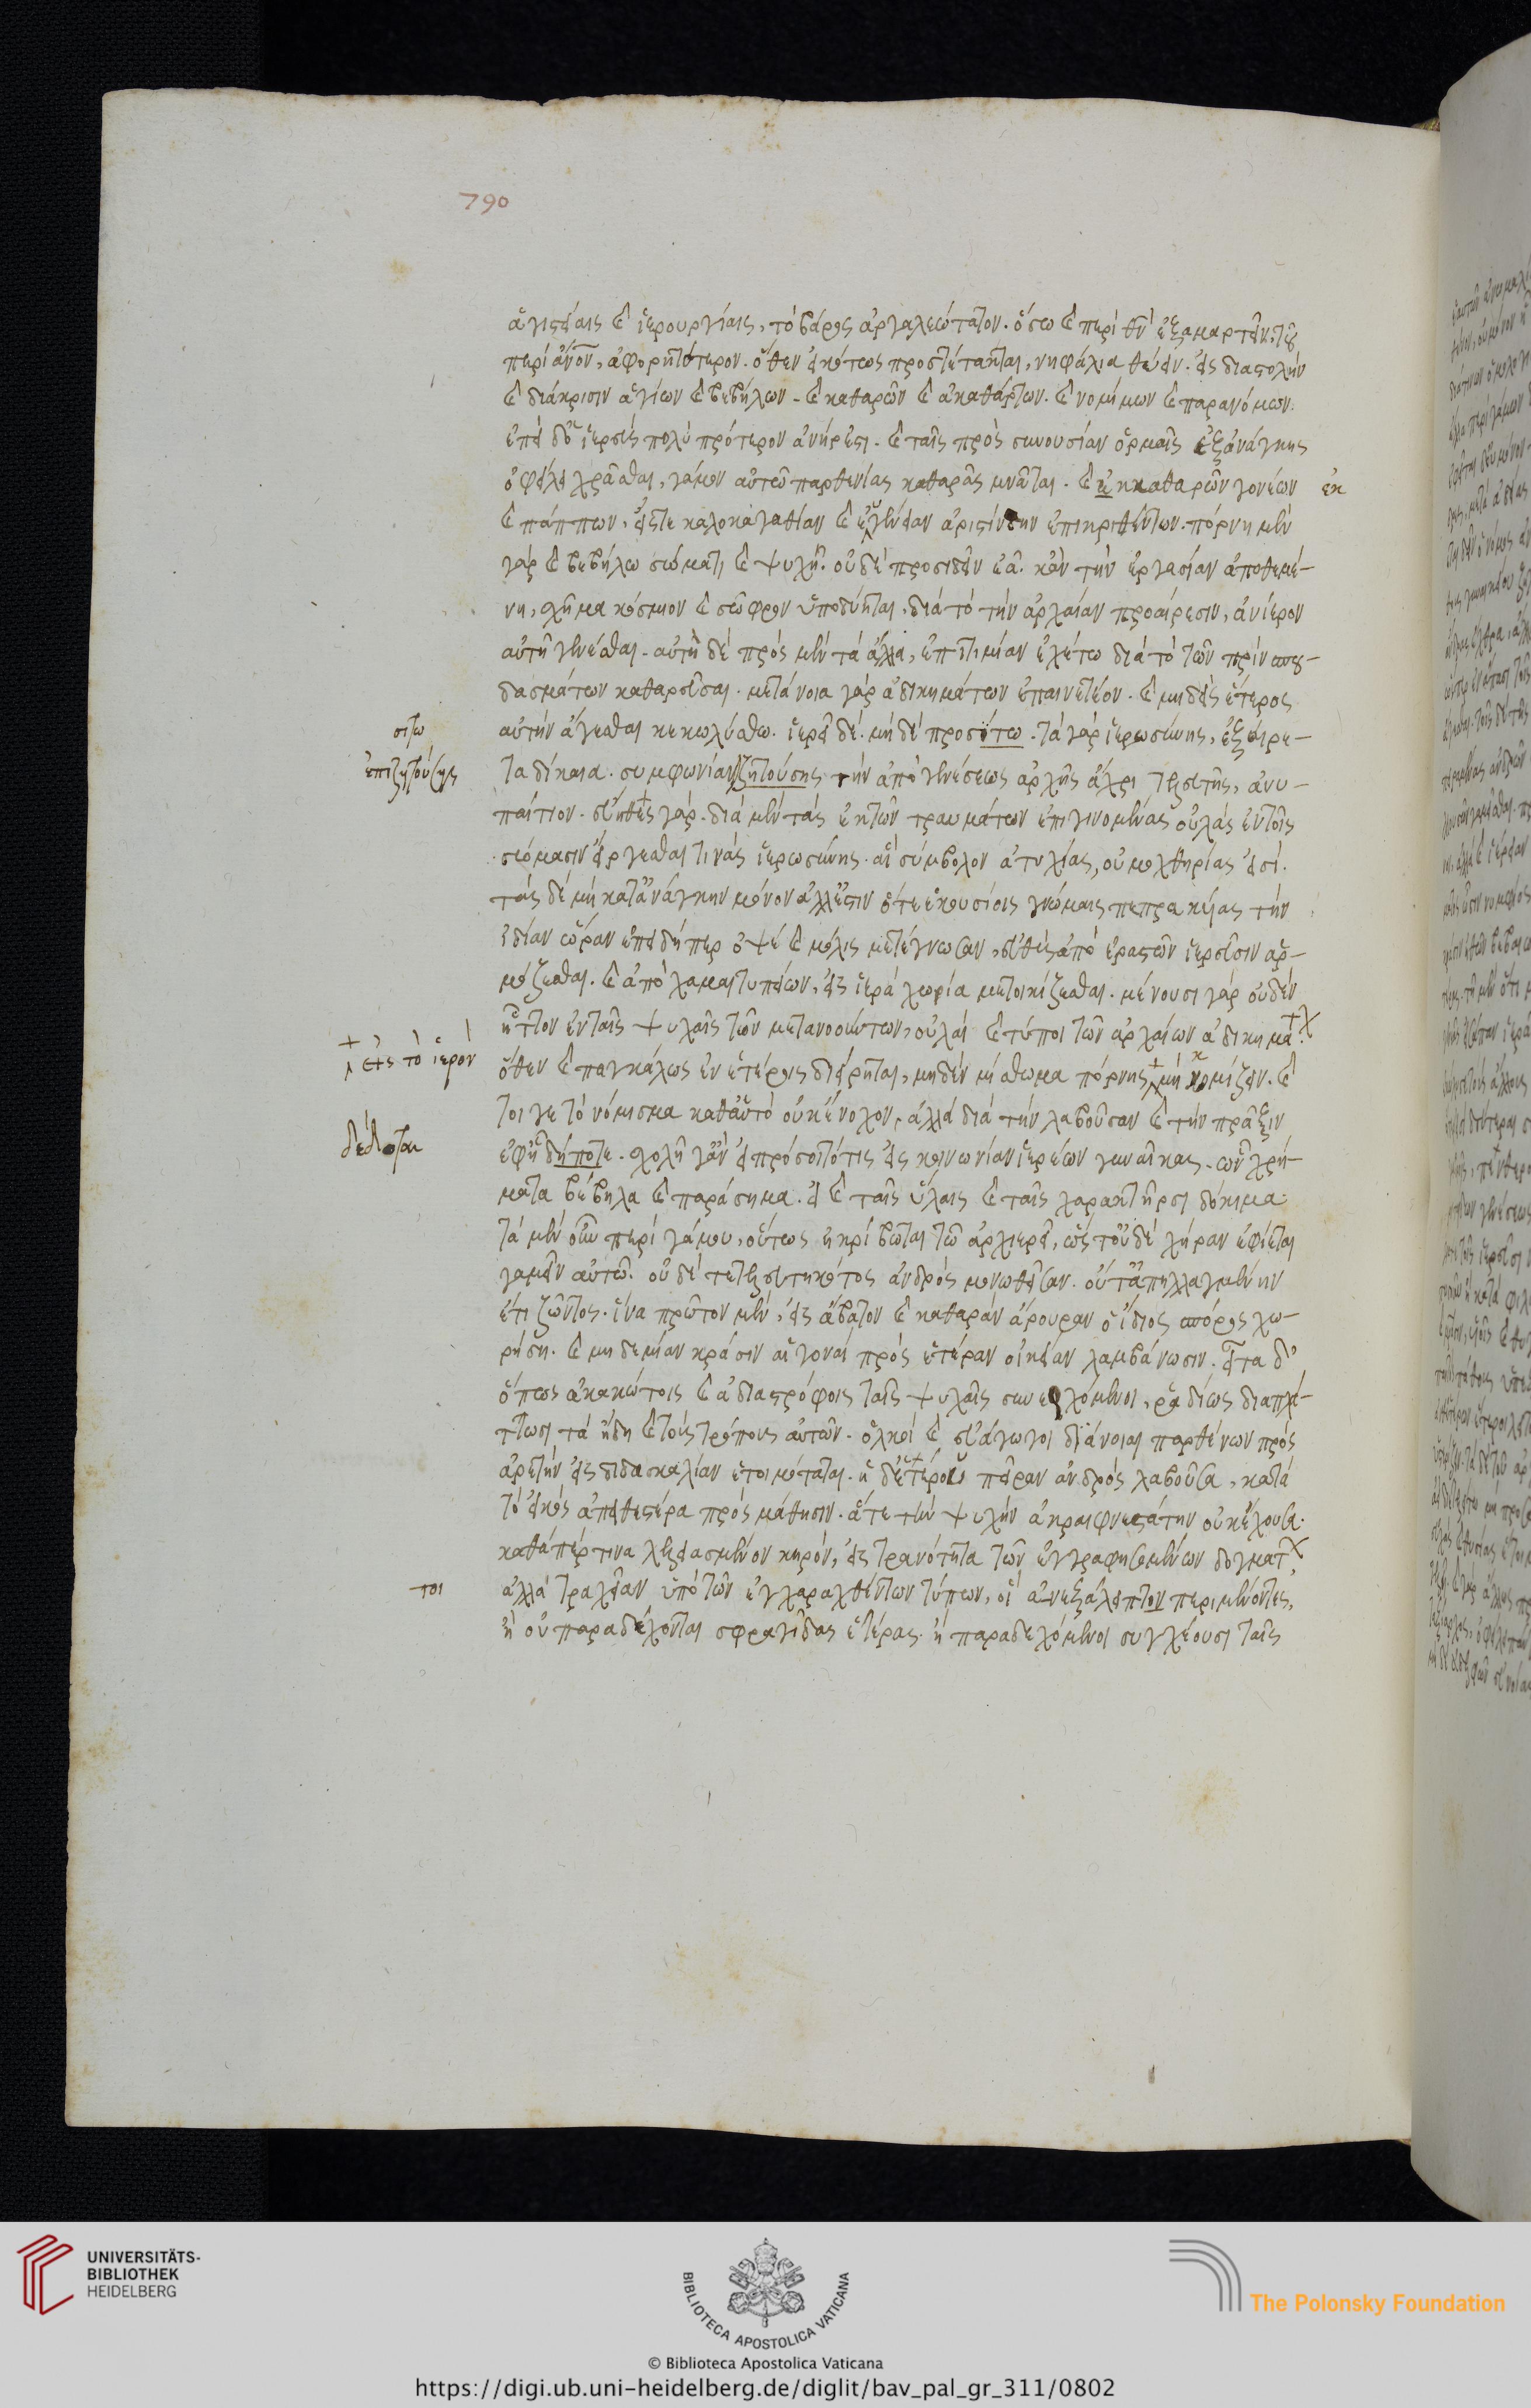 790
ἁγιστείαις καὶ ἱερουργίαις, τὸ βάρος ἀργαλεώτατον. ὅσω καὶ περὶ θν̄ ἐξαμαρτεῖν, τοῦ
περὶ ἀν̄ον, ἀφορητότερον. ὅθεν εἰκότως προστέτακται, νηφάλια θύειν. εἰς διαστολὴν
καὶ διάκρισιν ἁγίων καὶ βεβήλων. καὶ καθαρῶν καὶ ἀκαθάρτων. καὶ νομίμων καὶ παρανόμων.
ἐπεὶ δὲ ἱερεὺς πολὺ πρότερον ἀνήρ ἐστι. καὶ ταῖς πρὸς συνουσίαν ὁρμαῖς ἐξανάγκης
ὀφείλει χρᾶσθαι, γάμον αὐτῶ παρθενίας καθαρᾶς μνᾶται. καὶ ἐκ καθαρῶν γονέων
ἐκ
καὶ πάππων, εἴς τε καλοκαγαθίαν καὶ εὐγένειαν ἀριστίνδην ἐπικριθέντων. πόρνη μὲν
γὰρ καὶ βεβήλω σώματι καὶ ψυχῆ. οὐδὲ προσιδεῖν ἐᾶ. κἂν τὴν ἐργασίαν ἀποθεμέ-
νη, σχῆμα κόσμιον καὶ σῶφρον ὑποδύηται, διὰ τὸ τὴν ἀρχαίαν προαίρεσιν, ἀνίερον
αὐτῆ γενέσθαι. αὐτὴ δὲ πρὸς μὲν τὰ ἄλλα, ἐπιτιμίαν ἐχέτω διὰ τὸ τῶν πρὶν σπου-
δασμάτων καθαρεῦσαι. μετάνοια γὰρ ἀδικημάτων ἐπαινετέον. καὶ μηδεὶς ἕτερος
αὐτὴν ἄγεσθαι κεκωλύσθω. ἱερεῖ δὲ. μὴ δὲ προσίτω. τὰ γὰρ ἱερωσύνης, ἐξαίρε-
σίτω
τα δίκαια. συμφωνίαν ζητούσης τὴν ἀπὸ γενέσεως ἀρχῆς ἄχρι τελευτῆς, ἀνυ-
ἐπιζητούσης
παίτιον. εὔηθες γὰρ. διὰ μὲν τὰς ἐκ τῶν τραυμάτων ἐπιγινομένας οὐλὰς ἐν τοῖς
σώμασιν εἴργεσθαι τινὰς ἱερωσύνης. αἳ σύμβολον ἀτυχίας, οὐ μοχθηρίας εἰσί.
τὰς δὲ μὴ κατ' ἀνάγκην μόνον ἀλλ' ἔστιν ὅτε ἑκουσίοις γνώμαις πεπρακυίας τὴν
ἰδίαν ὥραν ἐπειδήπερ ὀψὲ καὶ μόλις μετέγνωσαν, εὐθὺς ἀπὸ ἐραστῶν ἱερεῦσιν ἁρ-
μόζεσθαι. καὶ ἀπὸ χαμαιτυπείων, εἰς ἱερὰ χωρία μετοικίζεσθαι. μένουσι γὰρ οὐδὲν
ἧττον ἐν ταῖς ψυχαῖς τῶν μετανοούντων, οὐλαὶ καὶ τύποι τῶν ἀρχαίων ἀδικημάτ
ὅθεν καὶ παγκάλως ἐν ἑτέροις διείρηται, μηδὲν μίσθωμα πόρνης μὴ κομίζειν. καὶ
εἰς τὸ ἱερὸν
τοι γε τὸ νόμισμα καθ' αὑτὸ οὐκ ἔνοχον, ἀλλὰ διὰ τὴν λαβοῦσαν καὶ τὴν πρᾶξιν
ἐφ' ἧ δήποτε. σχολῆ γ' ἂν εἰ πρόσοιτό τις εἰς κοινωνίαν ἱερέων γυναῖκας. ὧν χρή-
δέδοται
ματα βέβηλα καὶ παράσημα. εἰ καὶ ταῖς ὕλαις καὶ ταῖς χαρακτῆρσι δόκιμα.
τὰ μὲν οὖν περὶ γάμου, οὕτως ἠκρίβωται τῶ ἀρχιερεῖ, ὡς τοῦ δὲ χήραν ἐφίεται
γαμεῖν αὐτῶ. οὐδὲ τετελευτηκότος ἀνδρὸς μονωθεῖσαν. οὔτ' ἀπηλλαγμένην
ἔτι ζῶντος. ἵνα πρῶτον μὲν, εἰς ἄβατον καὶ καθαρὰν ἄρουραν ὁ ἴδιος σπόρος χω-
ρήση. καὶ μηδεμίαν κρᾶσιν αἱ γοναὶ πρὸς ἑτέραν οἰκείαν λαμβάνωσιν. εἶτα δ'
ὅπως ἀκακώτοις καὶ ἀδιαστρόφοις ταῖς ψυχαῖς συνερχόμενοι, ῥαδίως διαπλά-
ττωσι τὰ ἤδη καὶ τοὺς τρόπους αὐτῶν. ὁλκοὶ καὶ εὐάγωγοι διάνοιαι παρθένων πρὸς
ἀρετὴν εἰς διδασκαλίαν ἑτοιμόταται. ἡ δ' ἑτέρου πεῖραν ἀνδρὸς λαβοῦσα, κατὰ
τὸ εἰκὸς ἀπειθεστέρα πρὸς μάθησιν. ἅτε τὴν ψυχὴν ἀκραιφνεστάτην οὐκ ἔχουσα.
καθάπερ τινα λελειασμένον κηρὸν, εἰς τρανότητα τῶν ἐγγραφησομένων δογμάτ
ἀλλὰ τραχεῖαν ὑπὸ τῶν ἐγχαραχθέντων τύπων, οἳ ἀνεξάλειπτον περιμένοντες,
τοι
ἢ οὐ παραδέχονται σφραγίδας ἑτέρας. ἢ παραδεχόμενοι συγχέουσι ταῖς
UNIVERSITÄTS-
BIBLIOTHEK
HEIDELBERG
BIBLIOTECA APOSTOLICA VATICANA
The Polonsky Foundation
© Biblioteca Apostolica Vaticana
https://digi.ub.uni-heidelberg.de/diglit/bav_pal_gr_311/0802